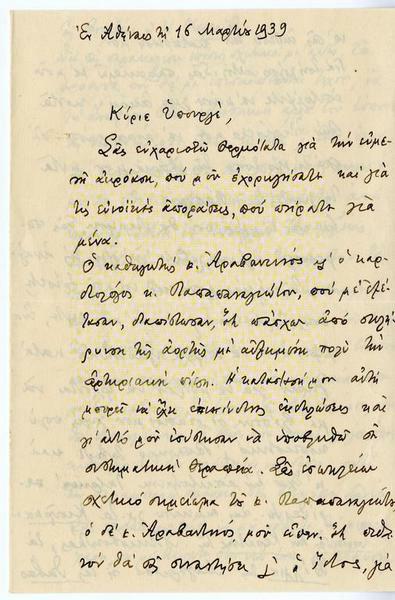 Ἐν Ἀθήναις τῇ 16 Μαρτίου 1939
Κύριε Ὑπουργέ,
Σᾶς εὐχαριστῶ θερμότατα γιὰ τὴν εὐμε-
νῆ ἀκρόαση, ποὺ μοῦ ἐχορηγήσατε καὶ γιὰ
τὶς εὐνοϊκὲς ἀποφάσεις, ποὺ πήρατε γιὰ
μένα.
Ὁ καθηγητὴς κ. Ἀραβαντινὸς κι' ὁ καρ-
διολόγος κ. Παπαπαναγιώτου, ποὺ μὲ ἐξέ-
τασαν, διαπίστωσαν, ὅτι πάσχω ἀπὸ σκλή-
ρυνση τῆς ἀορτῆς μὲ αὐξημένη πολὺ τὴν
ἀρτηριακὴ πίεση. Ἡ κατάστασή μου αὐτὴ
μπορεῖ νὰ ἔχῃ ἐπικίνδυνες ἐκδηλώσεις καὶ
γι' αὐτὸ μοῦ ἐσύστησαν νὰ ὑποβληθῶ σὲ
συστηματικὴ θεραπεία. Σᾶς ἐσωκλείω
σχετικὸ σημείωμα τοῦ κ. Παπαπαναγιώτου,
ὁ δὲ κ. Ἀραβαντινὸς μοῦ εἶπεν, ὅτι
θὰ σᾶς συναντήσῃ ὁ ἴδιος, γιὰ